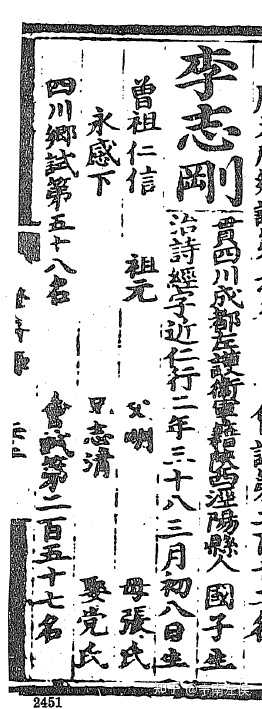 李志剛
貫四川成都左護衛軍籍陝西涇陽縣人 國子生
治詩經字近仁行二年三十八三月初八日生
曾祖仁信 祖元 父明 母張氏
永感下 兄志清 娶党氏
四川鄉試第五十八名 會試第二百五十七名
2451
知乎